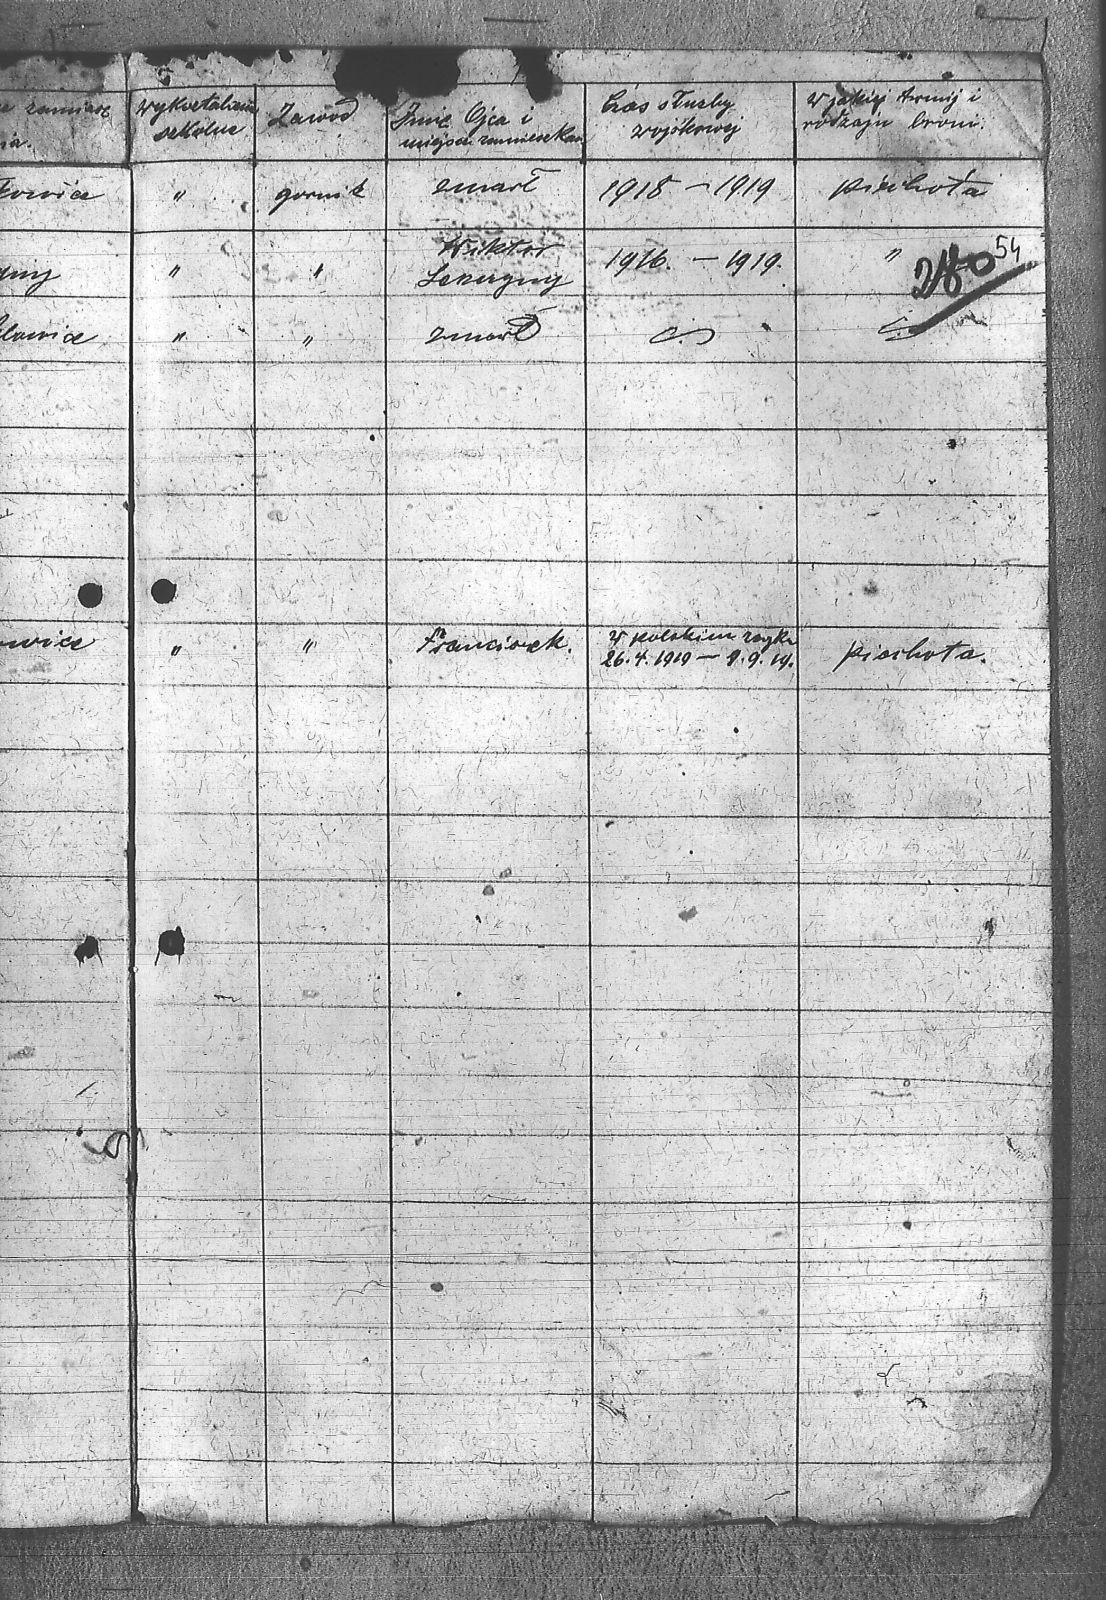 wykształcenie
szkolne
Zawód
Imię Ojca i
miejsce zamieszkan
Czas służby
wojskowej
w jakiej Armij i
rodzaju broni.
górnik zmarł 1918 – 1919 piechota
" " Wiktor 1916. – 1919. "
54
" " zmarł
" " Franciszek. w polskim wojku
26.4.1919 – 9.9.19. piechota.